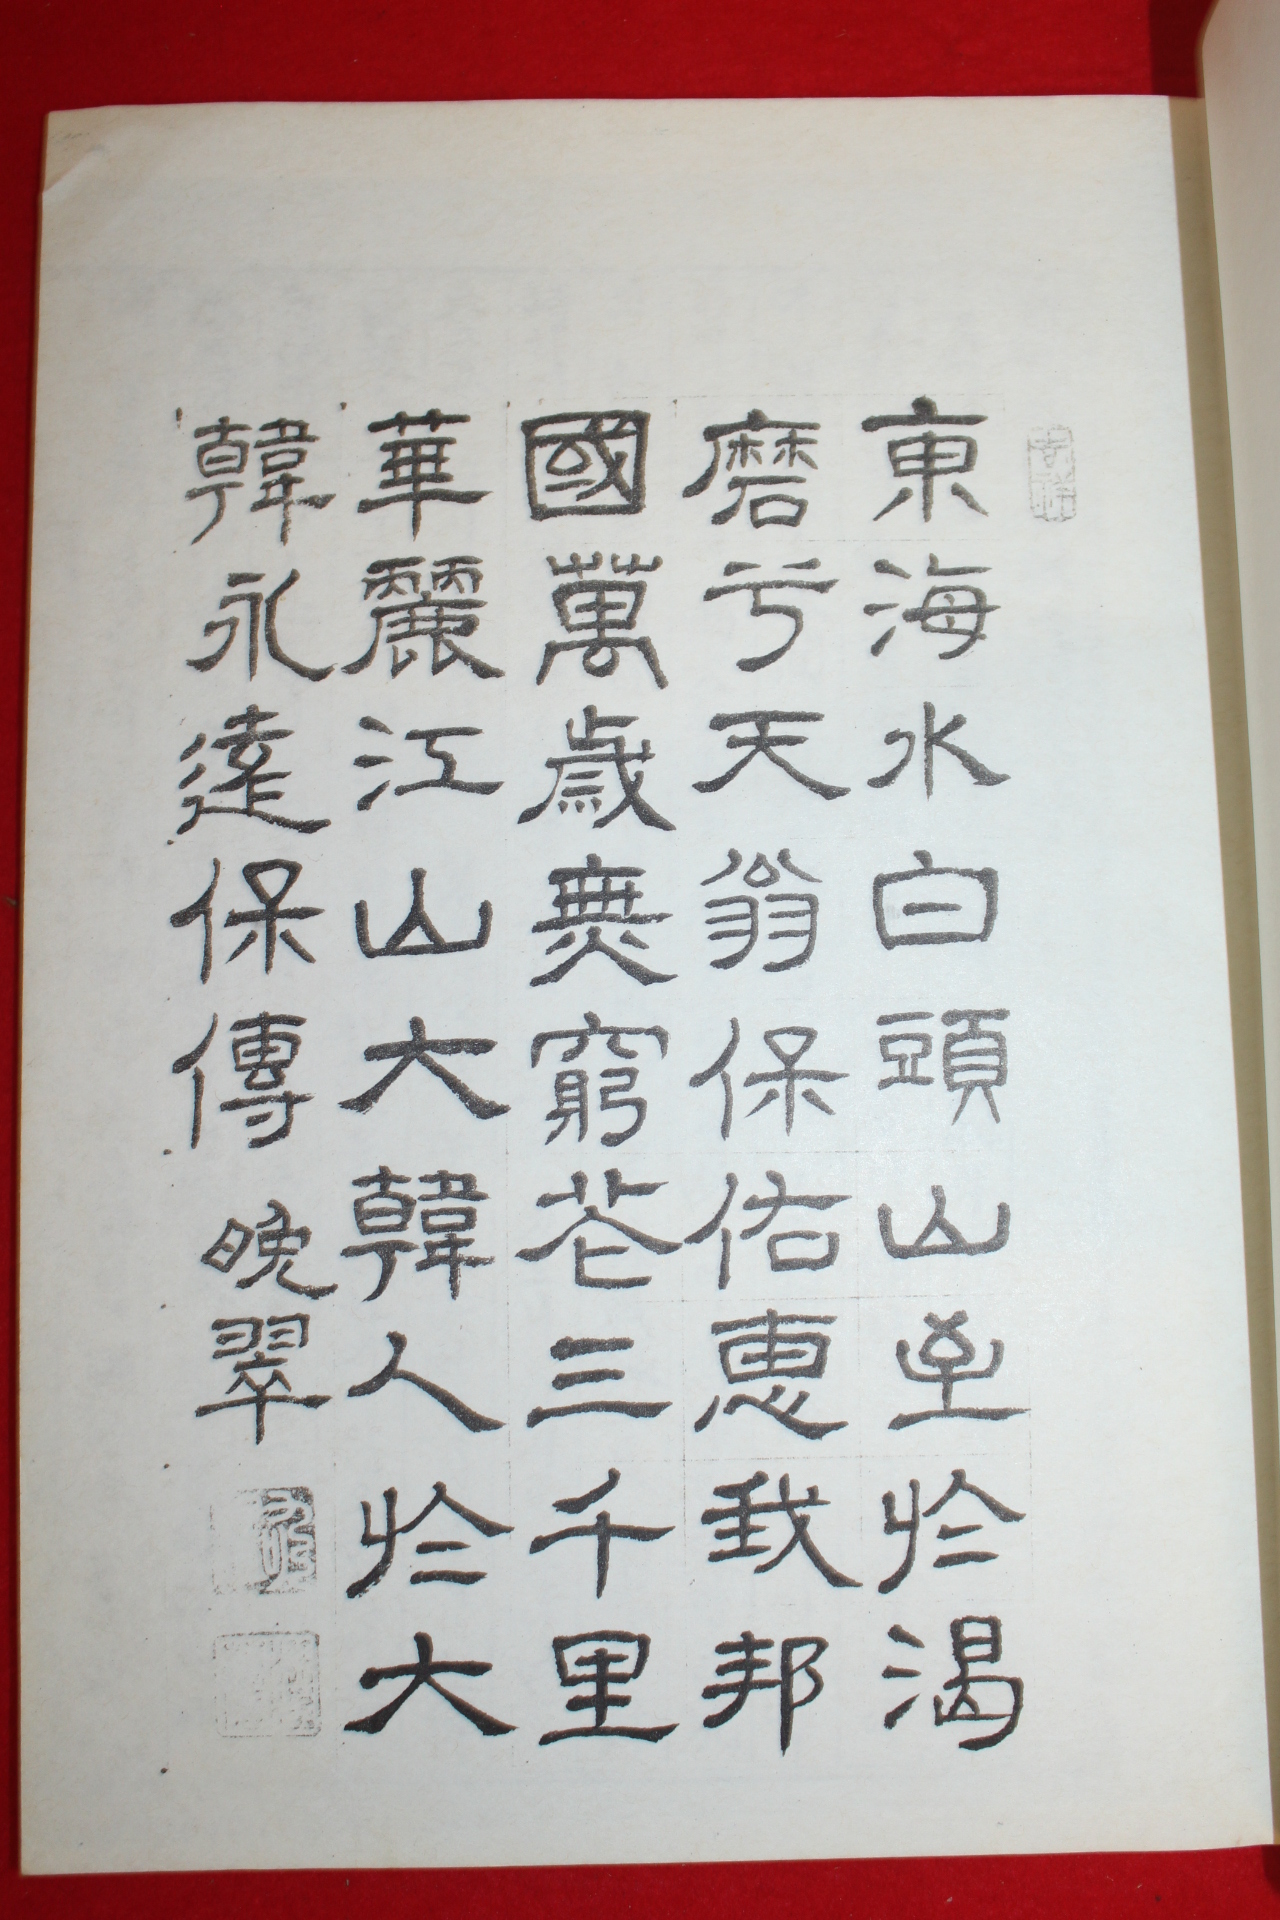 東海水白頭山至於渴
磨兮天翁保佑惠我邦
國萬歲無窮花三千里
華麗江山大韓人於大
韓永遠保傳 晩翠